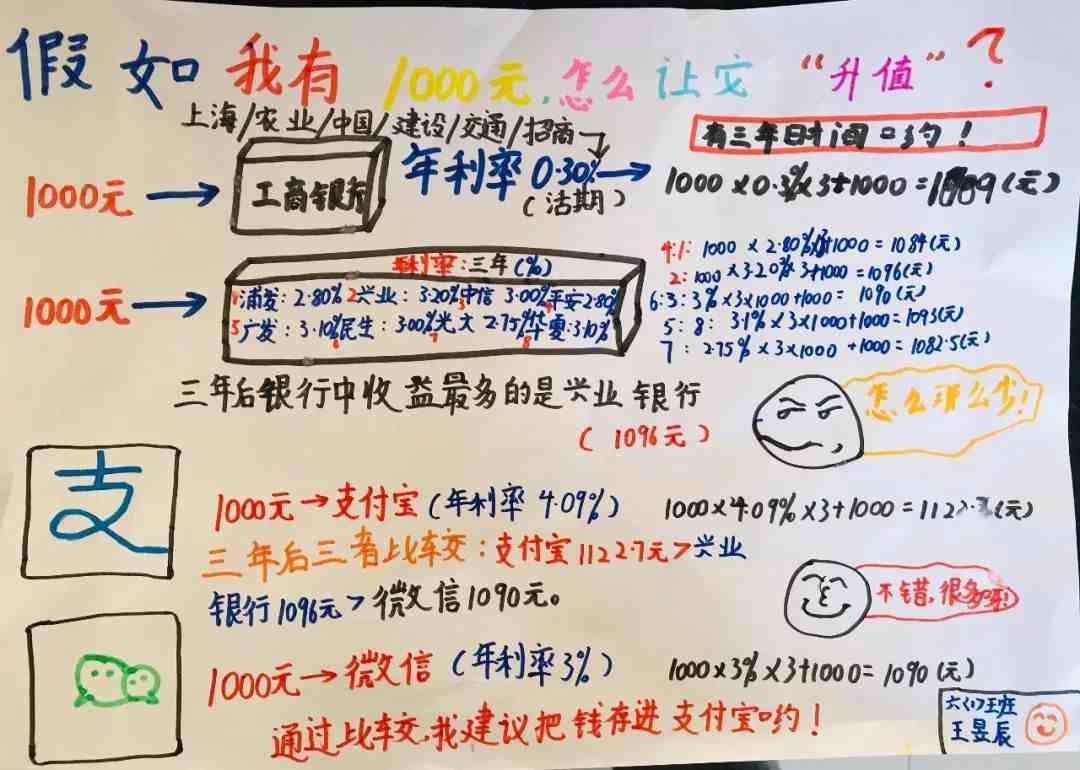 假如我有1000元,怎么让它“升值”?
上海/农业/中国/建设/交通/招商
有三年时间哟!
1000元
工商银行
年利率0.30%
(活期)
1000×0.3%×3+1000=1009(元)
1000元
年利率:三年(%)
1浦发:2.80% 2兴业:3.20% 3中信 3.00% 4平安2.80%
5广发:3.10% 6民生:3.00% 7光大 2.75% 8华夏:3.10%
4.1:1000×2.80%×3+1000=1084(元)
2:1000×3.20%×3+1000=1096(元)
6:3:3%×3×1000+1000=1090(元)
5:8:3.1%×3×1000+1000=1093(元)
7:2.75%×3×1000+1000=1082.5(元)
三年后银行中收益最多的是兴业银行
(1096元)
怎么那么少!
支
1000元→支付宝(年利率4.09%)
1000×4.09%×3+1000=1122.7(元)
三年后三者比较:支付宝1122.7元>兴业
银行1096元>微信1090元。
不错,很多啦!
1000元→微信(年利率3%)
1000×3%×3+1000=1090(元)
通过比较,我建议把钱存进支付宝哟!
六(1)班
王昱辰